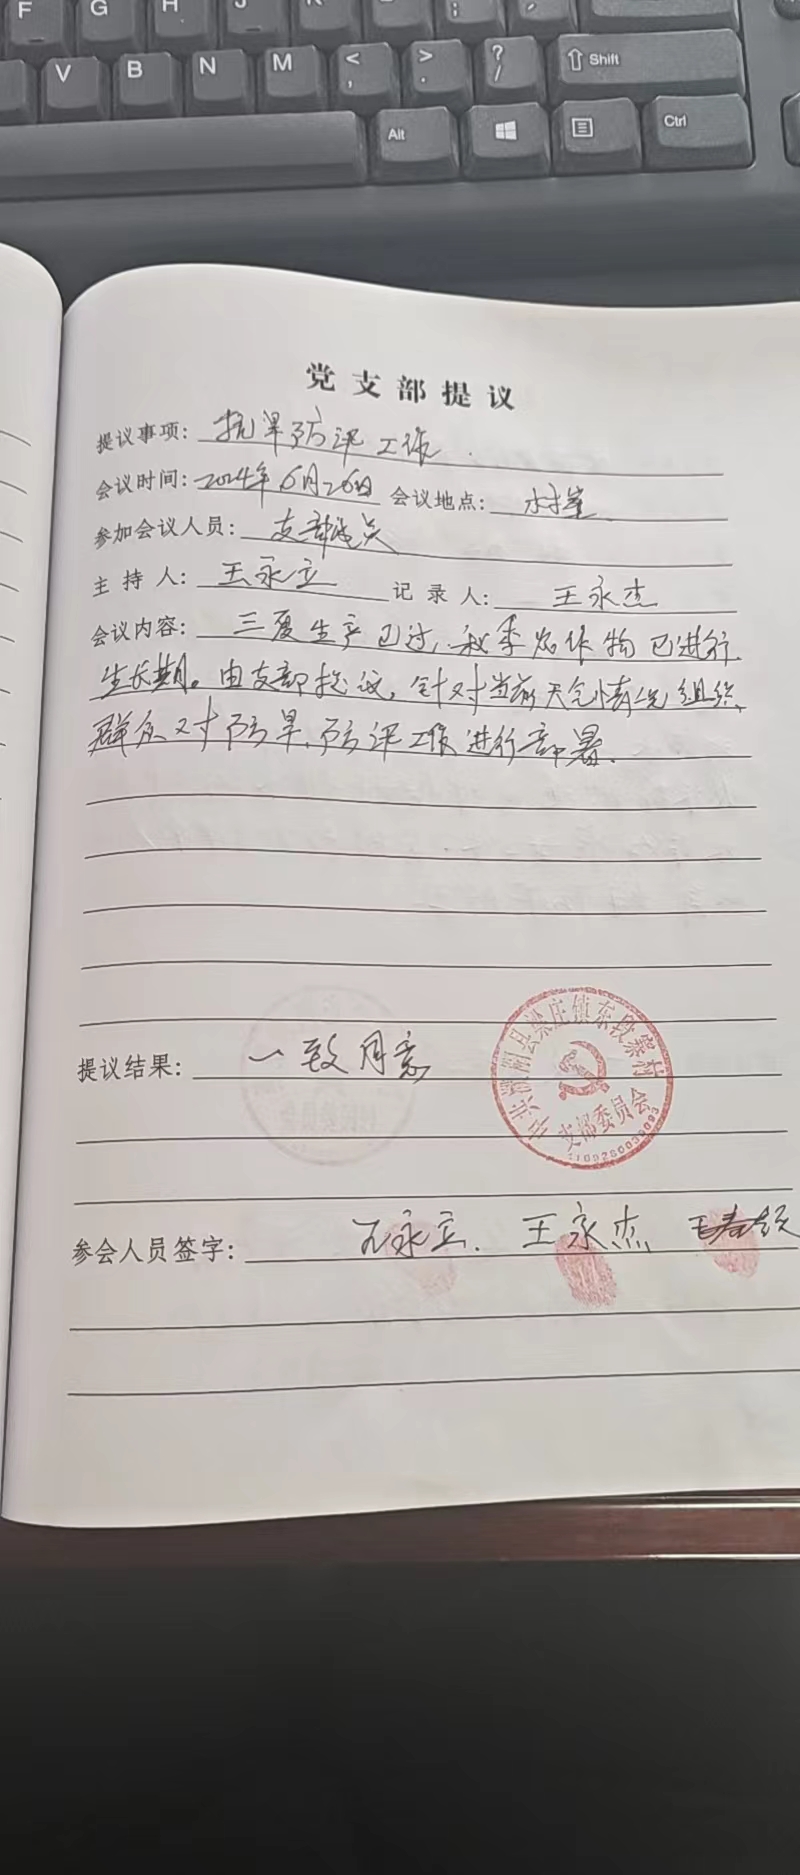 F G H J K L ;
V B N M < , > . ? / Shift
Alt Ctrl
党支部提议
提议事项: 抗旱防汛工作.
会议时间: 2024年6月26日 会议地点: 村室
参加会议人员: 支部成员
主持人: 王永立 记录人: 王永杰
会议内容: 三夏生产已过,秋季农作物已进行
生长期。由支部提议,针对当前天气情况组织
群众对防旱、防汛工作进行部署.
提议结果: 一致同意
中共濮阳县梁庄镇东段寨村
支部委员会
村民委员会
参会人员签字: 王永立. 王永杰